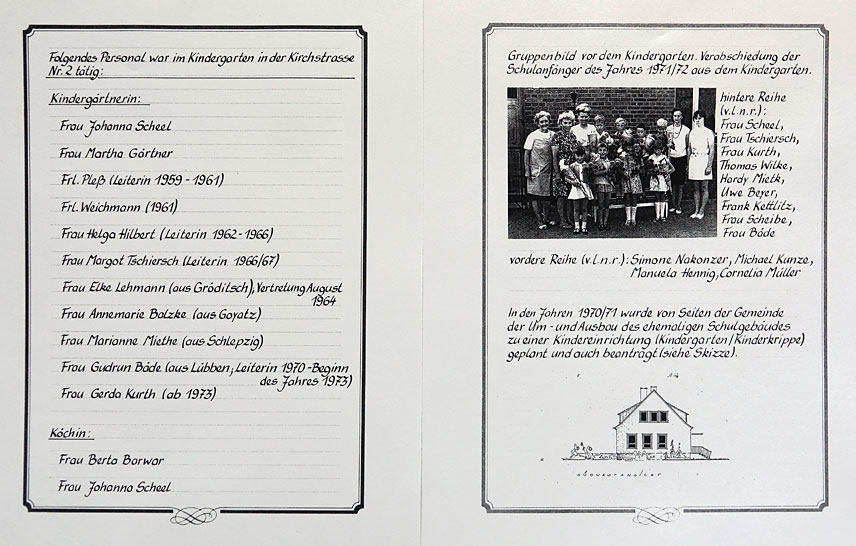 Folgendes Personal war im Kindergarten in der Kirchstrasse
Nr. 2 tätig:
Kindergärtnerin:
Frau Johanna Scheel
Frau Martha Gärtner
Frl. Pleß (Leiterin 1959 - 1961)
Frl. Weichmann (1961)
Frau Helga Hilbert (Leiterin 1962 - 1966)
Frau Margot Tschiersch (Leiterin 1966/67)
Frau Elke Lehmann (aus Gröditsch), Vertretung August
1964
Frau Annemarie Balzke (aus Goyatz)
Frau Marianne Miethe (aus Schlepzig)
Frau Gudrun Bäde (aus Lübben, Leiterin 1970 - Beginn
des Jahres 1973)
Frau Gerda Kurth (ab 1973)
Köchin:
Frau Berta Borwar
Frau Johanna Scheel
Gruppenbild vor dem Kindergarten. Verabschiedung der
Schulanfänger des Jahres 1971/72 aus dem Kindergarten.
hintere Reihe
(v.l.n.r.):
Frau Scheel,
Frau Tschiersch,
Frau Kurth,
Thomas Wilke,
Hardy Mietk,
Uwe Beyer,
Frank Kettlitz,
Frau Scheibe,
Frau Bäde
vordere Reihe (v.l.n.r.): Simone Nakonzer, Michael Kunze,
Manuela Hennig, Cornelia Müller
In den Jahren 1970/71 wurde von Seiten der Gemeinde
der Um - und Ausbau des ehemaligen Schulgebäudes
zu einer Kindereinrichtung (Kindergarten/Kinderkrippe)
geplant und auch beantragt (siehe Skizze).